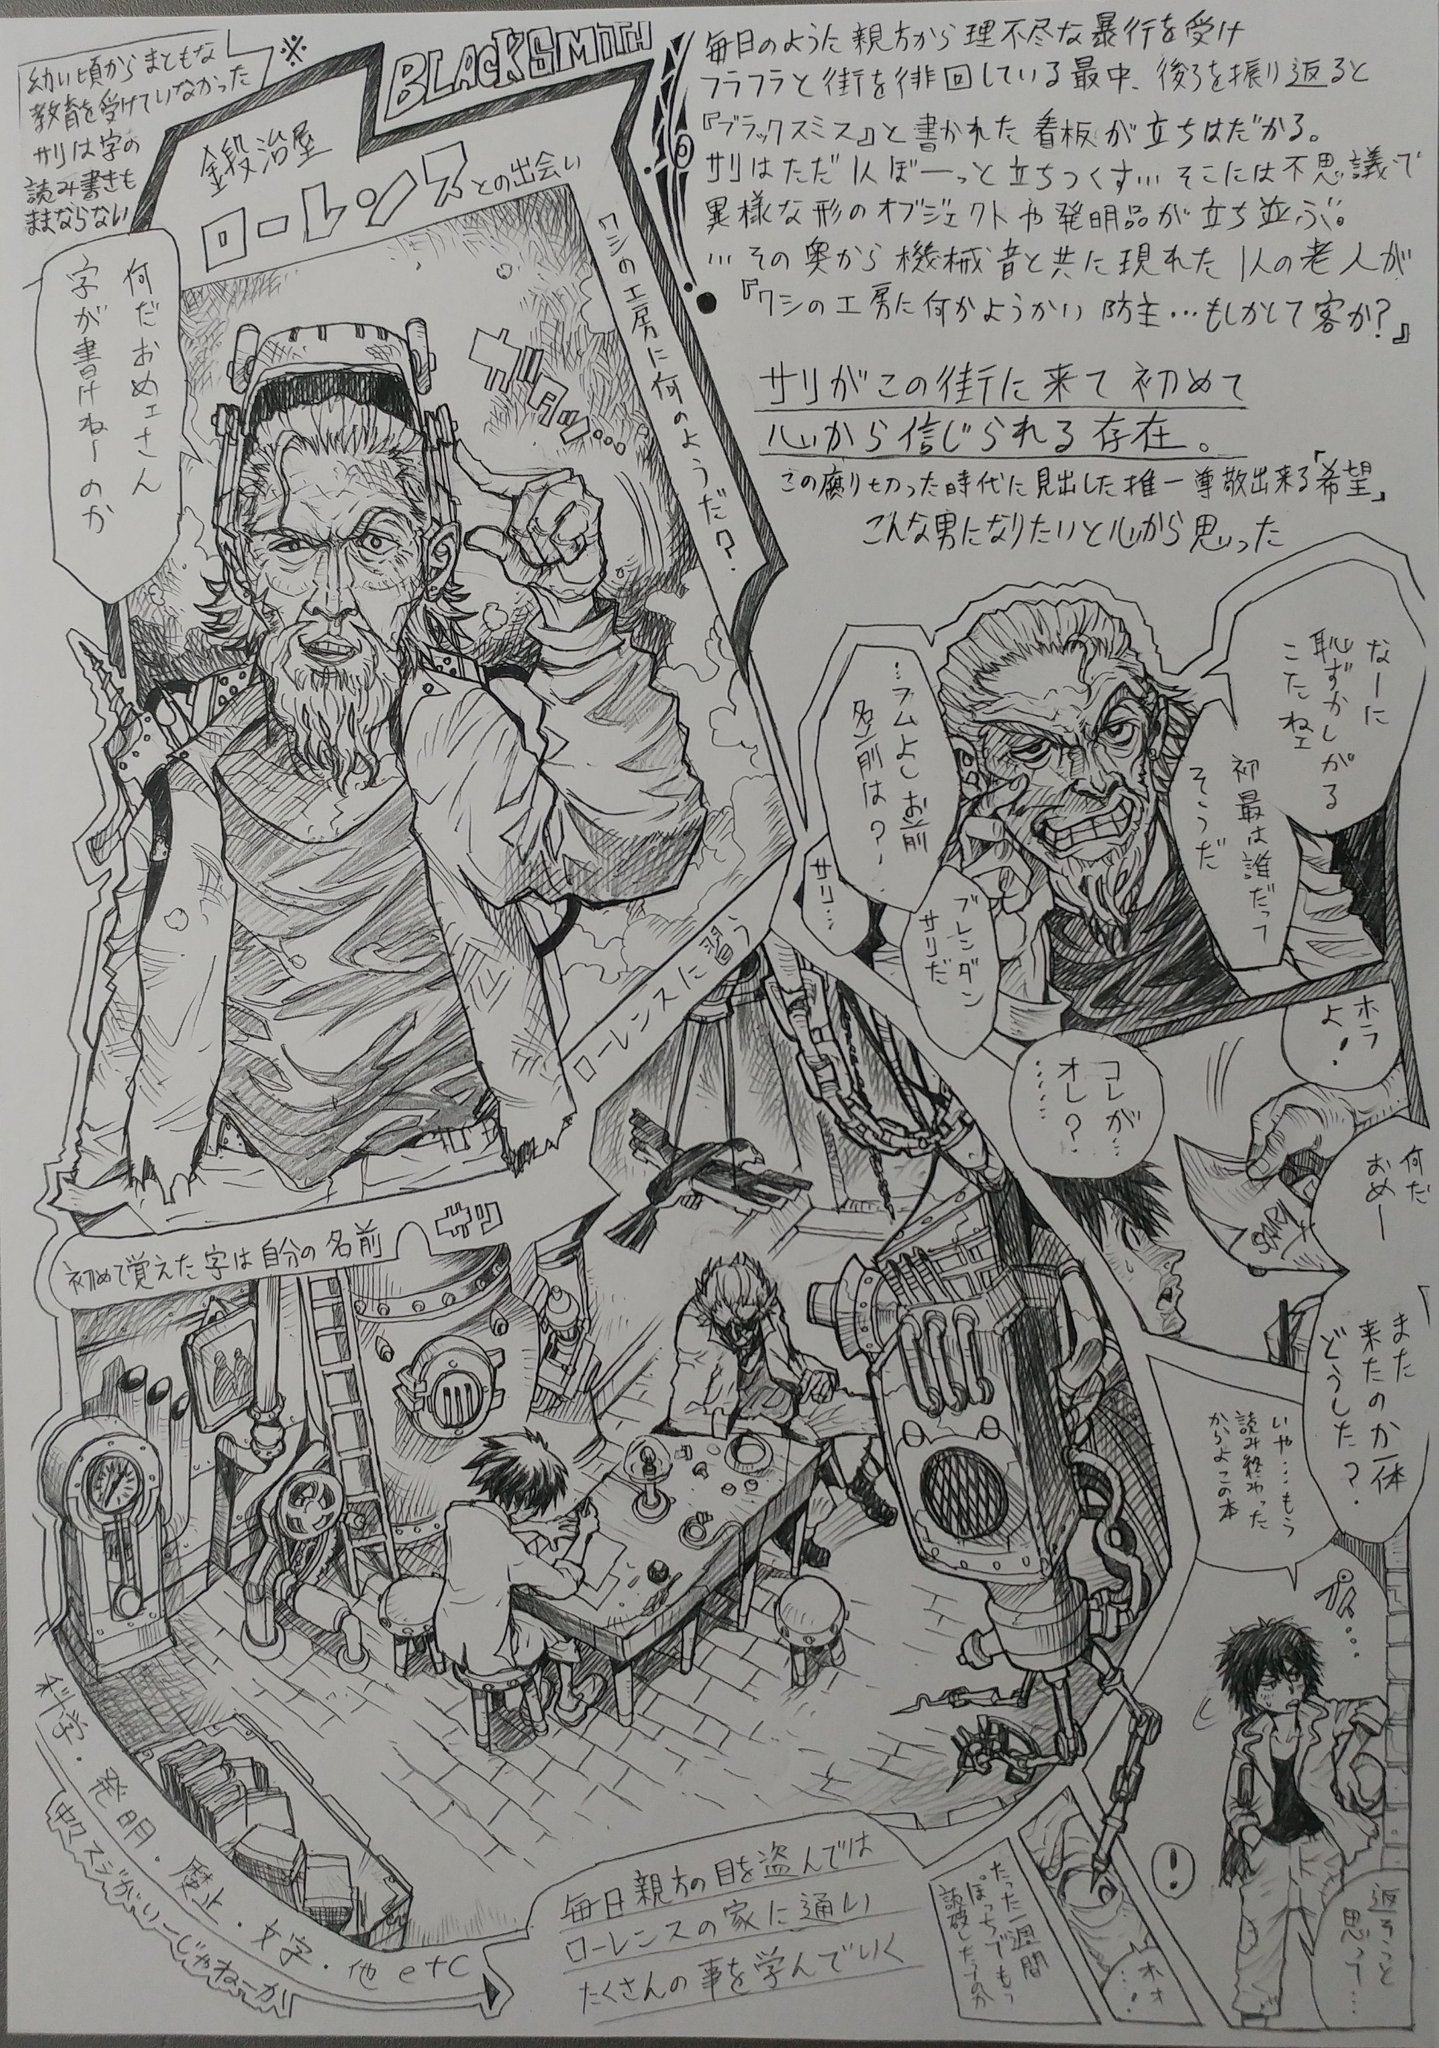 幼い頃からまともな
教育を受けていなかった
サリは字の
読み書きも
ままならない
※
BLACKSMITH
鍛冶屋
ローレンスとの出会い
毎日のように親方から理不尽な暴行を受け
フラフラと街を徘回している最中、後ろを振り返ると
『ブラックスミス』と書かれた看板が立ちはだかる。
サリはただ1人ぼーっと立ちつくす…そこには不思議で
異様な形のオブジェクトや発明品が立ち並ぶ。
…その奥から機械音と共に現れた1人の老人が
『ワシの工房に何かようかい防主…もしかして客か?』
サリがこの街に来て初めて
心から信じられる存在。
この腐り切った時代に見出した推一尊敬出来る「希望」
こんな男になりたいと心から思った
ワシの工房に何のようだ?
何だおめェさん
字が書けねーのか
なーに
恥ずかしがる
こたねェ
初最は誰だって
そうだ
…フムよしお前
名前は?
サリ…
ブレンダン
サリだ
ローレンスに習う
ホラ
よ!
コレが…
オレ?
……
SARI
初めて覚えた字は自分の名前
何だ
おめー
また
来たのか一体
どうした?
いや…もう
読み終わった
からよこの本
プス…
返そうと
思って…
!
オォ
…!
たった一週間
ぽっちでもう
読破したってのか
科学・発明・魔止・文字・他etc
やるスジがいーじゃねーか
毎日親方の目を盗んでは
ローレンスの家に通い
たくさんの事を学んでいく